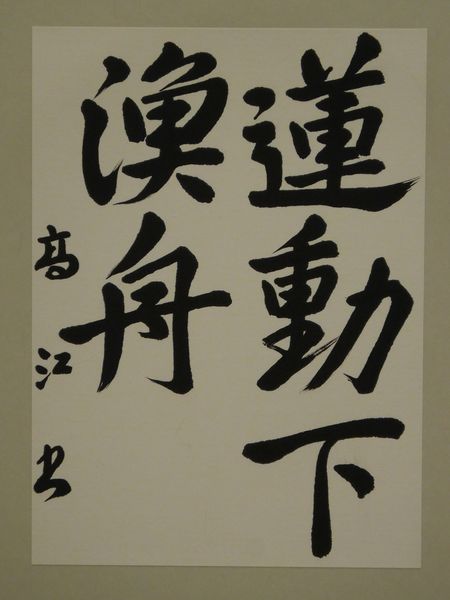 蓮動下
漁舟
高江書